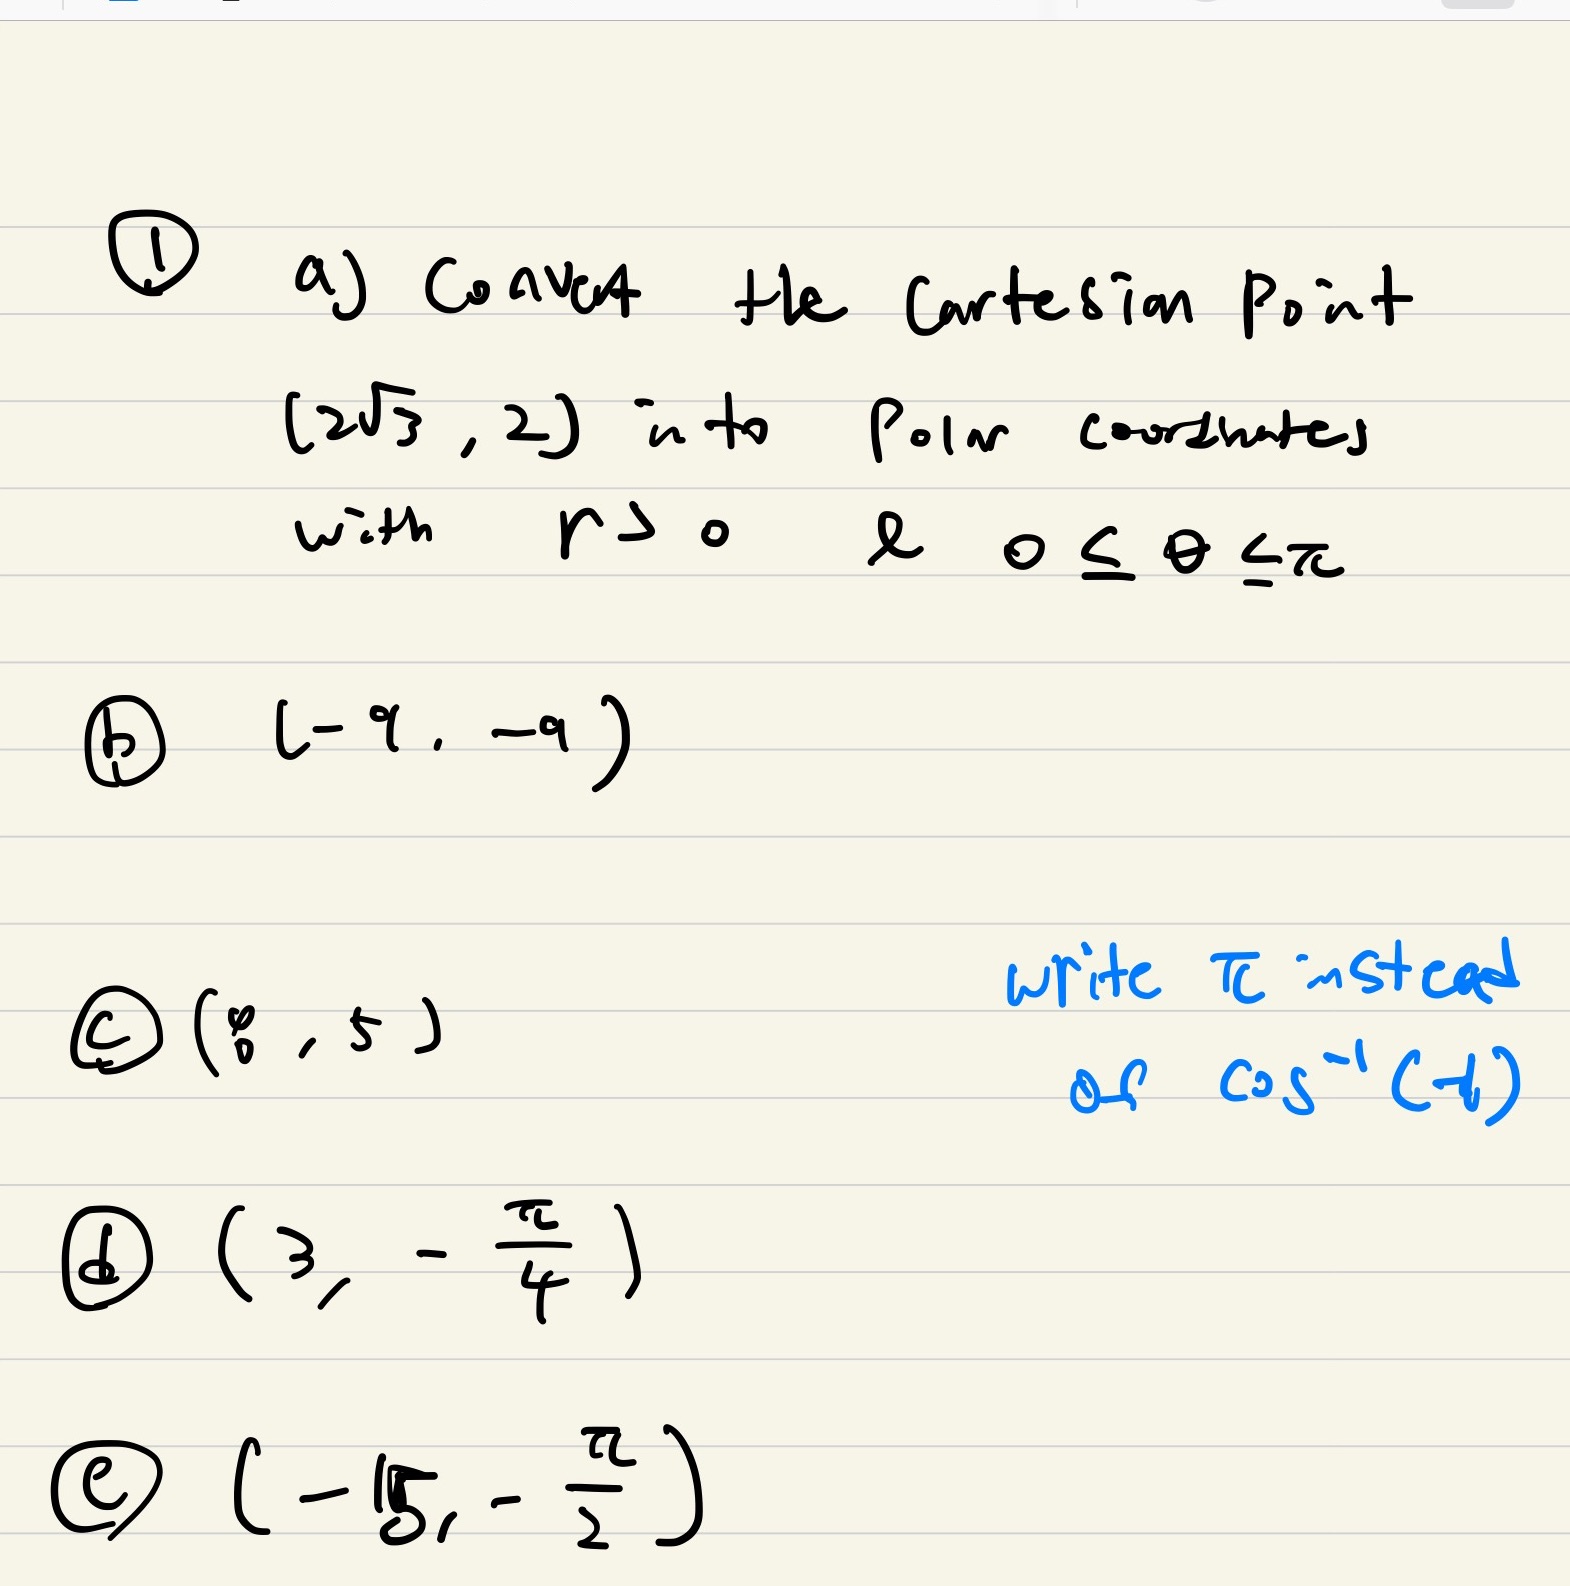 ① a) Convert the Cartesian Point
(2√3, 2) into Polar coordinates
with r > 0 & 0 ≤ θ ≤ π
ⓑ (-9, -9)
ⓒ (8, 5)
write π instead
of cos⁻¹(-1)
ⓓ (3, -π/4)
ⓔ (-15, -π/2)